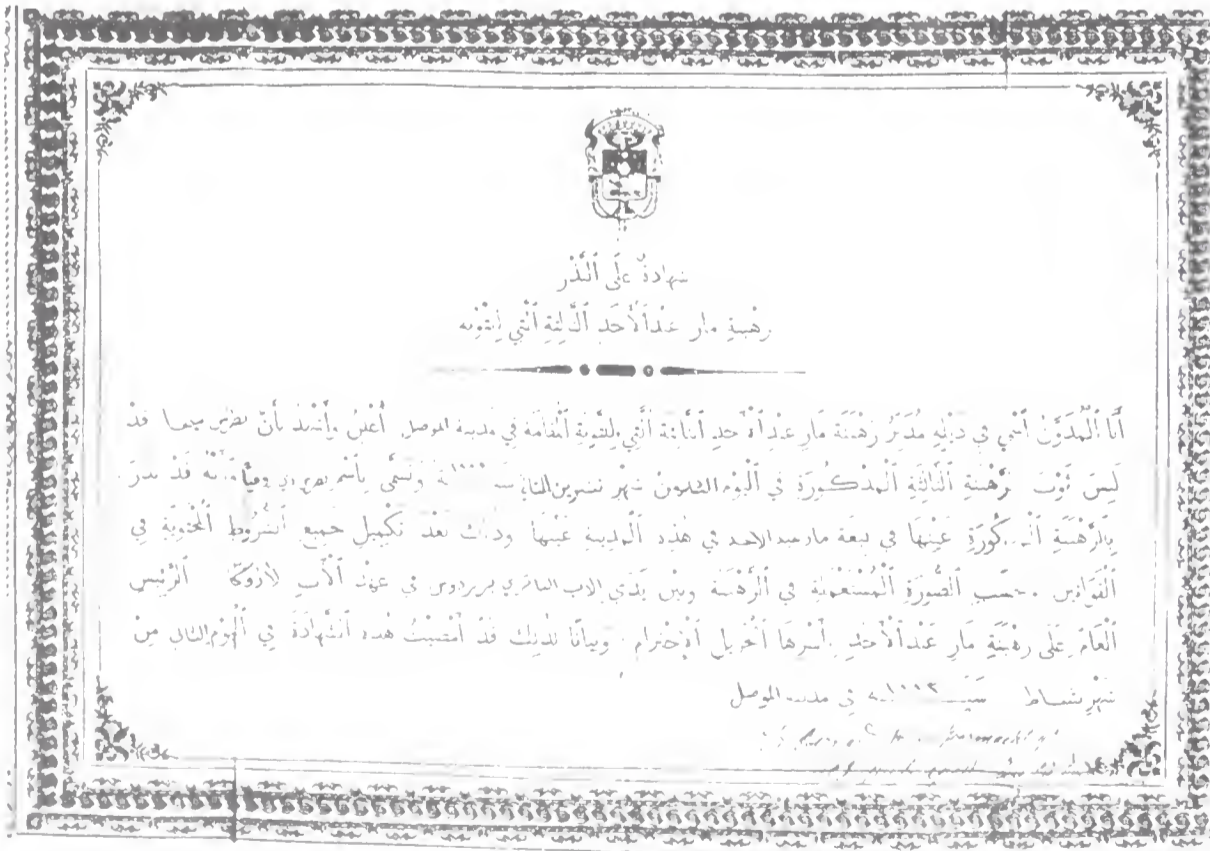 شهادةٌ علَى ٱلنَّذْر
رهْبنةِ مار عَبْدِٱلْأَحَدِ ٱلثَّالِثَةِ ٱلَّتِي لِلتَّوْبَةِ
أَنَا ٱلْمُدَوَّنُ ٱسْمِي فِي ذَيْلِهِ مُدَبِّرُ رَهْبَنَةِ مَارِ عَبْدِٱلْأَحَدِ ٱلثَّالِثَةِ ٱلَّتِي لِلتَّوْبَةِ ٱلْمُقَامَةِ فِي مَدِينَةِ الموصل أُعْلِنُ وَأَشْهَدُ بأَنَّ بطرس قَدْ
لَبِسَ ثَوْبَ ٱلرَّهْبَنَةِ ٱلثَّالِثَةِ ٱلْمَذْكُورَةِ فِي ٱلْيَوْمِ الثلاثون شهْرِ تشرين الثاني سنة وَتَسَمَّى بِٱسْمِ وَأَنَّهُ قَدْ نَذَرَ
بِٱلرَّهْبَنَةِ ٱلْمَذْكُورَةِ عَيْنِهَا فِي بِيعَةِ مار عبد الاحد فِي هٰذِهِ ٱلْمَدِينَةِ عَيْنِهَا وذلك بَعْدَ تَكْمِيلِ جَمِيعِ ٱلشُّرُوطِ ٱلْمُحْتَوِيَةِ فِي
ٱلْقَوَانِينِ بحَسَبِ ٱلصُّورَةِ ٱلْمُسْتَعْمَلَةِ فِي ٱلرَّهْبَنَةِ وَبَيْنَ يَدَيِ الاب فِي عَهْدِ ٱلْأَبِ لَارُوكَا ٱلرَّئِيسِ
ٱلْعَامِّ عَلَى رَهْبَنَةِ مَارِ عَبْدِٱلْأَحَدِ بِأَسْرِهَا ٱلْجَزِيلِ ٱلْإِحْتِرَامِ وبيانًا لذلِكَ قَدْ أَمْضَيْتُ هٰذِهِ ٱلشَّهَادَةَ فِي ٱلْيَوْمِ الثاني مِنْ
شَهْرِ شباط سَنَة فِي مدينة الموصل